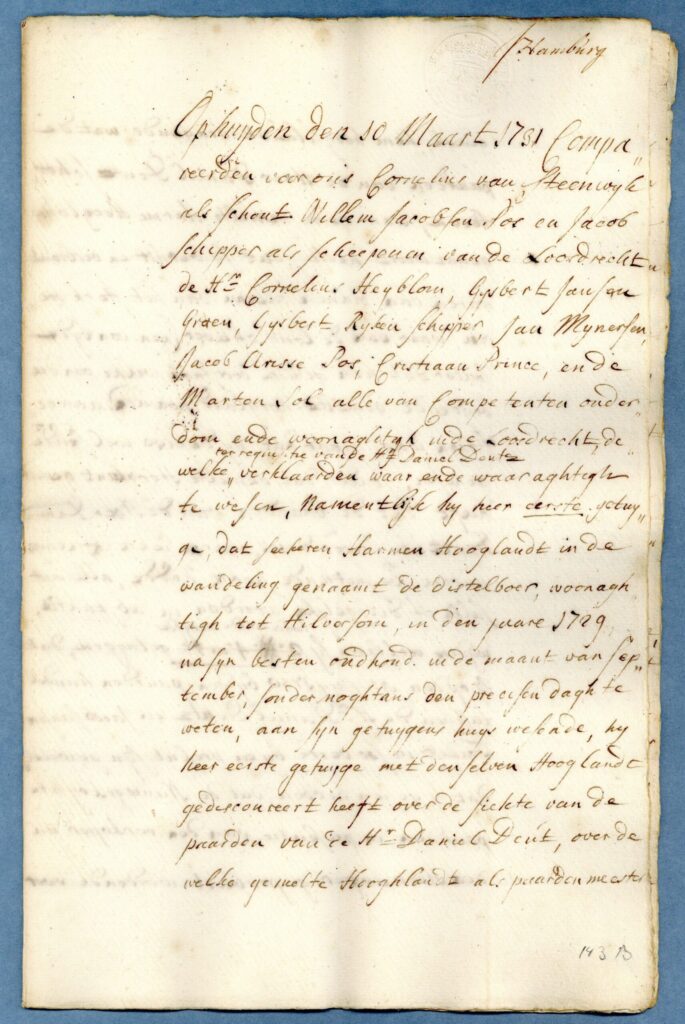 Hamburg
Ophuyden den 10 Maart 1731 Compa„
reerden voor ons Cornelius van Steenwijk
als schout Willem Jacobsen Pos en Jacob
schipper als scheepenen van de Loosdrecht„
de Hr Cornelius Heyblom, Gysbert Jansen
Groen, Gysbert Rijken schipper, Jan Mynersen,
Jacob Arisse Pos, Cristiaan Prince, en de
Marten Sol alle van Competenten onder„
dom ende woonaghtigh inde Loosdrecht, de„
ter requisitie van de Hr Daniel Deutz
welke„ verklaarden waar ende waaraghtigh
te wesen, Namentlijk hy heer eerste getuy„
ge, dat seekeren Harmen Hooglandt in de
wandeling genaamt de distelboer, woonagh
tigh tot Hilversom, in den jaare 1729
na syn besten ondhoud inde maant van sep„
tember, sonder noghtans den precisen dagh te
weten, aan syn getuygens huys wesende, hy
heer eerste getuyge met denselven Hooglandt
gediscoureert heeft over de siekte van de
paarden van de Hr Daniel Deut, over de
welke gemelte Hooghlandt als paardenmeester
143 B